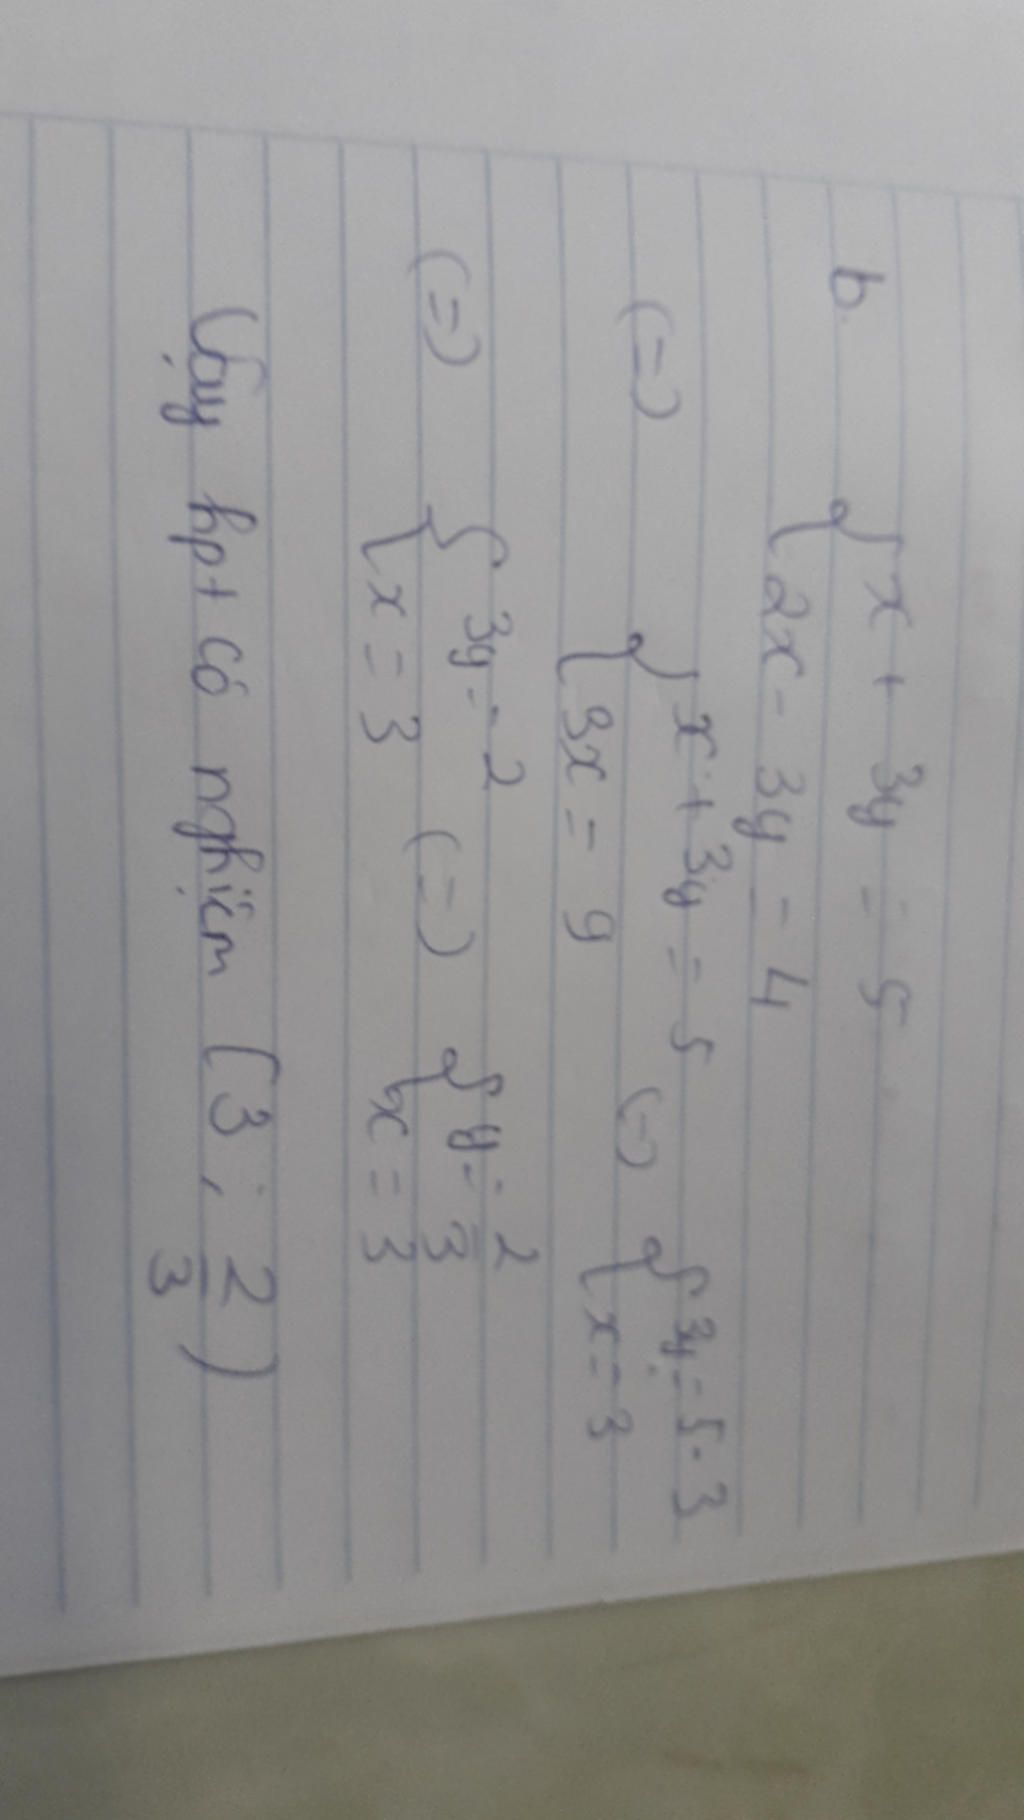 b. { x + 3y = 5
{ 2x - 3y = 4
(=) { x + 3y = 5 (=) { 3y = 5 - 3
{ 3x = 9 { x = 3
(=) { 3y = 2 (=) { y = 2/3
{ x = 3 { x = 3
Vậy hpt có nghiệm (3 ; 2/3)